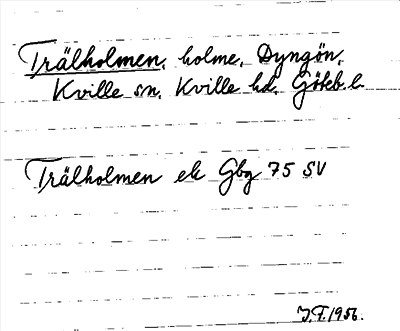 Trälholmen, holme, Dyngön,
Kville sn, Kville hd, Göteb. l.
Trälholmen ek Gbg 75 SV
J.T. 1956.